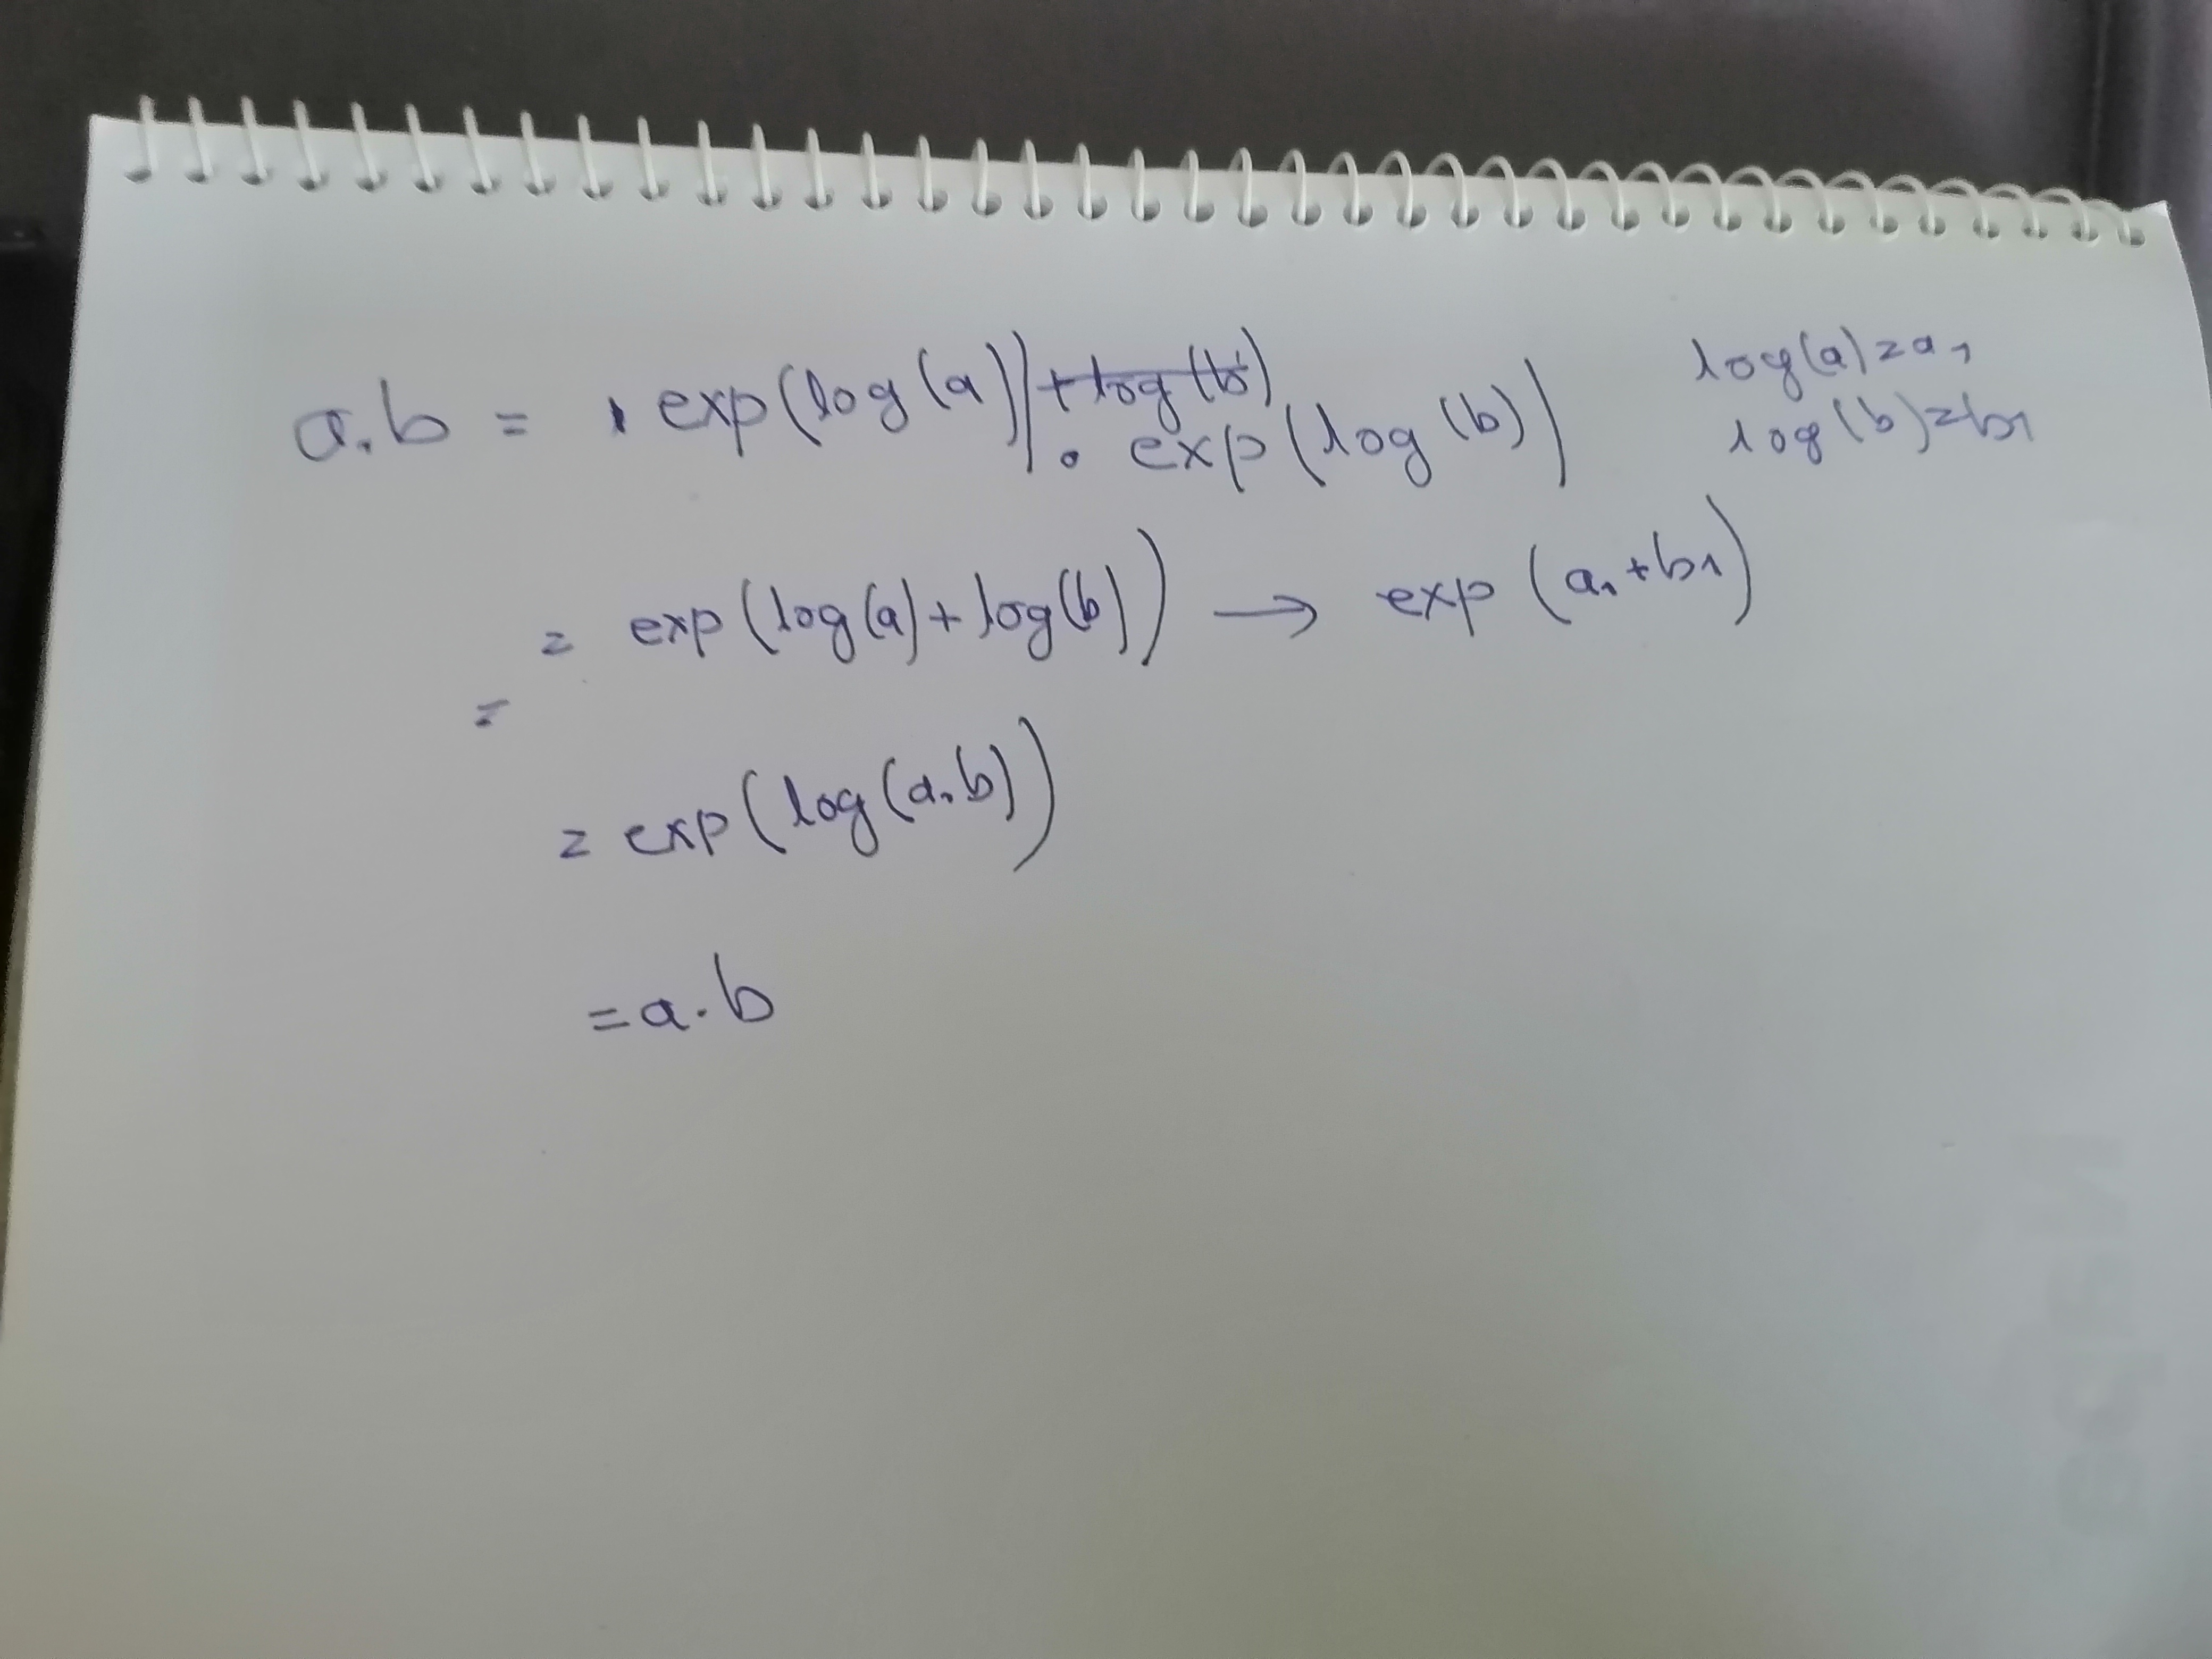 a.b = exp(log(a)) + log(b) . exp(log(b))
log(a)=a1
log(b)=b1
= exp(log(a)+log(b)) → exp(a1+b1)
=
= exp(log(a.b))
= a.b